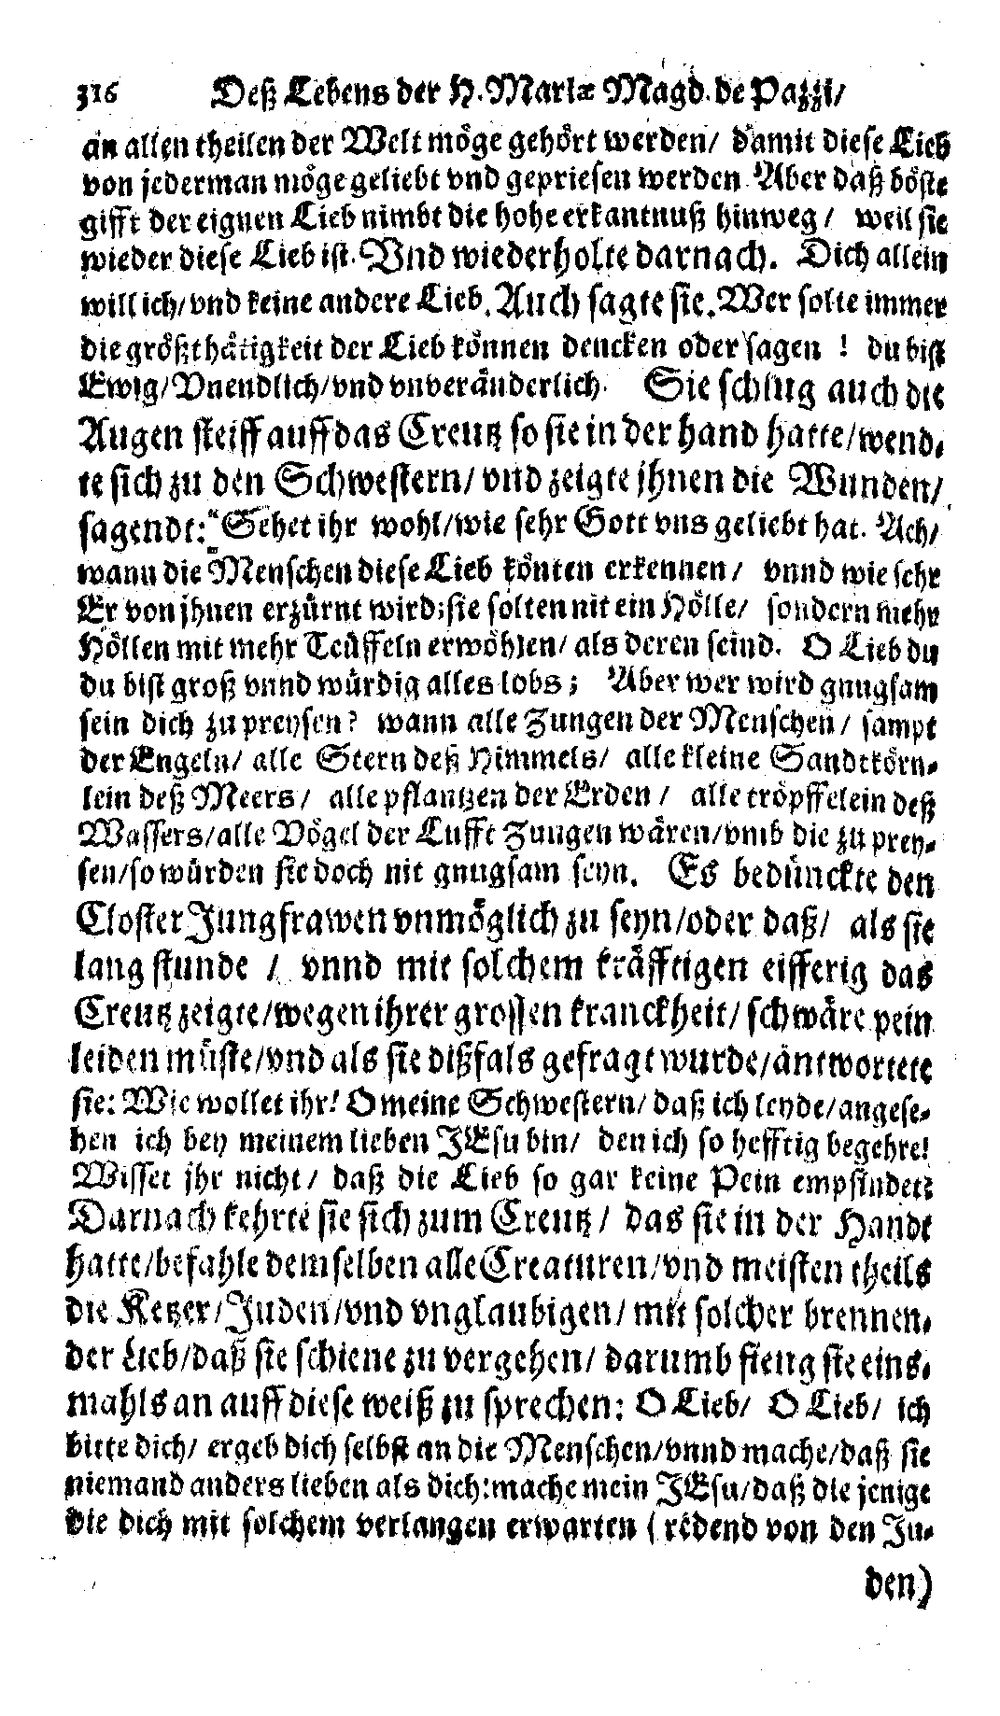 316 Deß Lebens der H. Mariæ Magd. de Pazzi/
an allen theilen der Welt möge gehört werden/ damit diese Lieb
von jederman möge geliebt vnd gepriesen werden. Aber daß böste
gifft der eignen Lieb nimbt die hohe erkantnuß hinweg/ weil sie
wieder diese Lieb ist. Vnd wiederholte darnach. Dich allein
will ich/ vnd keine andere Lieb. Auch sagte sie. Wer solte immer
die größthätigkeit der Lieb können dencken oder sagen! du bist
Ewig/ Vnendlich/ vnd vnveränderlich. Sie schlug auch die
Augen steiff auff das Creutz so sie in der hand hatte/ wend-
te sich zu den Schwestern/ vnd zeigte jhnen die Wunden/
sagendt: "Sehet ihr wohl/ wie sehr Gott vns geliebt hat. Ach/
wann die Menschen diese Lieb könten erkennen/ vnnd wie sehr
Er von jhnen erzürnt wird; sie solten nit ein Hölle/ sondern mehr
Höllen mit mehr Teüffeln erwöhlen/ als deren seind. O Lieb du
du bist groß vnnd würdig alles lobs; Aber wer wird gnugsam
sein dich zu preysen? wann alle Zungen der Menschen/ sampt
der Engeln/ alle Stern deß Himmels/ alle kleine Sandtkörn-
lein deß Meers/ alle pflantzen der Erden/ alle tröpffelein deß
Wassers/ alle Vögel der Lufft Zungen wären/ vmb die zu prey-
sen/ so würden sie doch nit gnugsam seyn. Es bedünckte den
Closter Jungfrawen vnmöglich zu seyn/ oder daß/ als sie
lang stunde/ vnnd mit solchem kräfftigen eifferig das
Creutz zeigte/ wegen ihrer grossen kranckheit/ schwäre pein
leiden müste/ vnd als sie dißfals gefragt wurde/ antwortete
sie: Wie wollet ihr! O meine Schwestern/ daß ich leyde/ angese-
hen ich bey meinem lieben JEsu bin/ den ich so hefftig begehre!
Wisset jhr nicht/ daß die Lieb so gar keine Pein empfindet?
Darnach kehrte sie sich zum Creutz/ das sie in der Handt
hatte/ befahle demselben alle Creaturen/ vnd meisten theils
die Ketzer/ Juden/ vnd vnglaubigen/ mit solcher brennen-
der Lieb/ daß sie schiene zu vergehen/ darumb fieng sie eins-
mahls an auff diese weiß zu sprechen: O Lieb/ O Lieb/ ich
bitte dich/ ergeb dich selbst an die Menschen/ vnnd mache/ daß sie
niemand anders lieben als dich: mache mein JEsu/ daß die jenige
die dich mit solchem verlangen erwarten (redend von den Ju-
den)